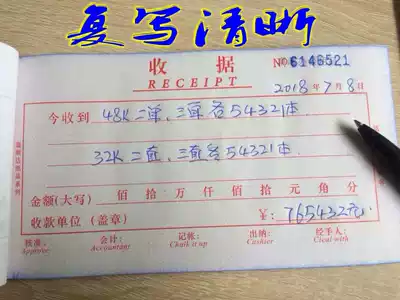 复写清晰
收 据
RECEIPT
No 6146521
2018年7月8日
今收到 48K二单、三单各54321本
32K二直、三直各54321本.
金额(大写) 佰 拾 万 仟 佰 拾 元 角 分
收款单位(盖章) ¥: 765432元
核准: 会计: 记帐: 出纳: 经手人:
Approve Accountant Chalk it up Cashier Cleal with